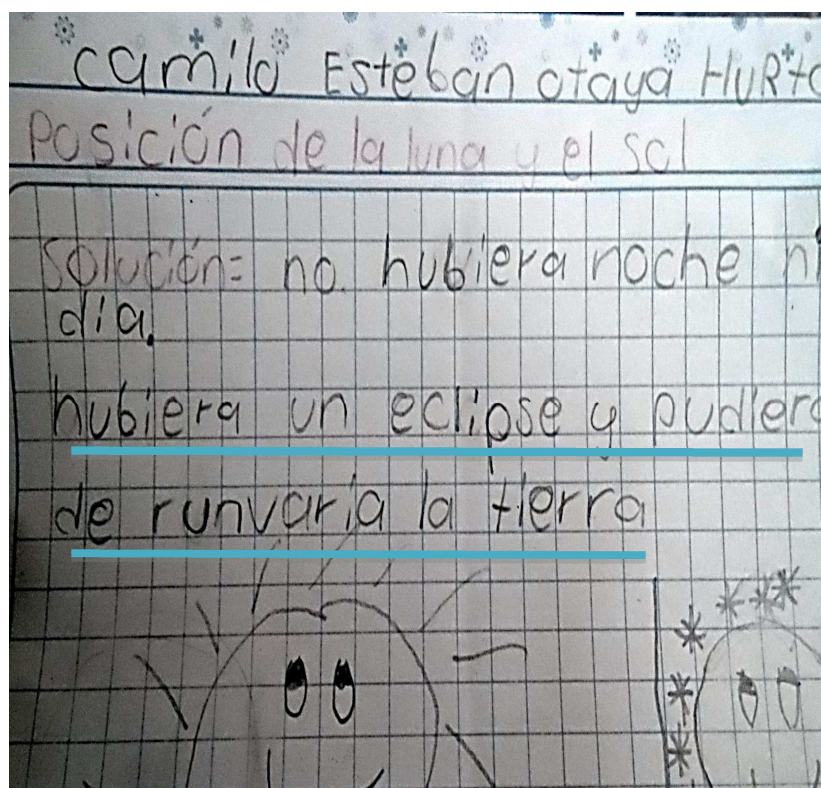 camilo Esteban otaya HURtO
Posición de la luna y el sol
Solución= no. hubiera noche ni
día.
hubiera un eclipse y pudiera
de runvaria la tierra